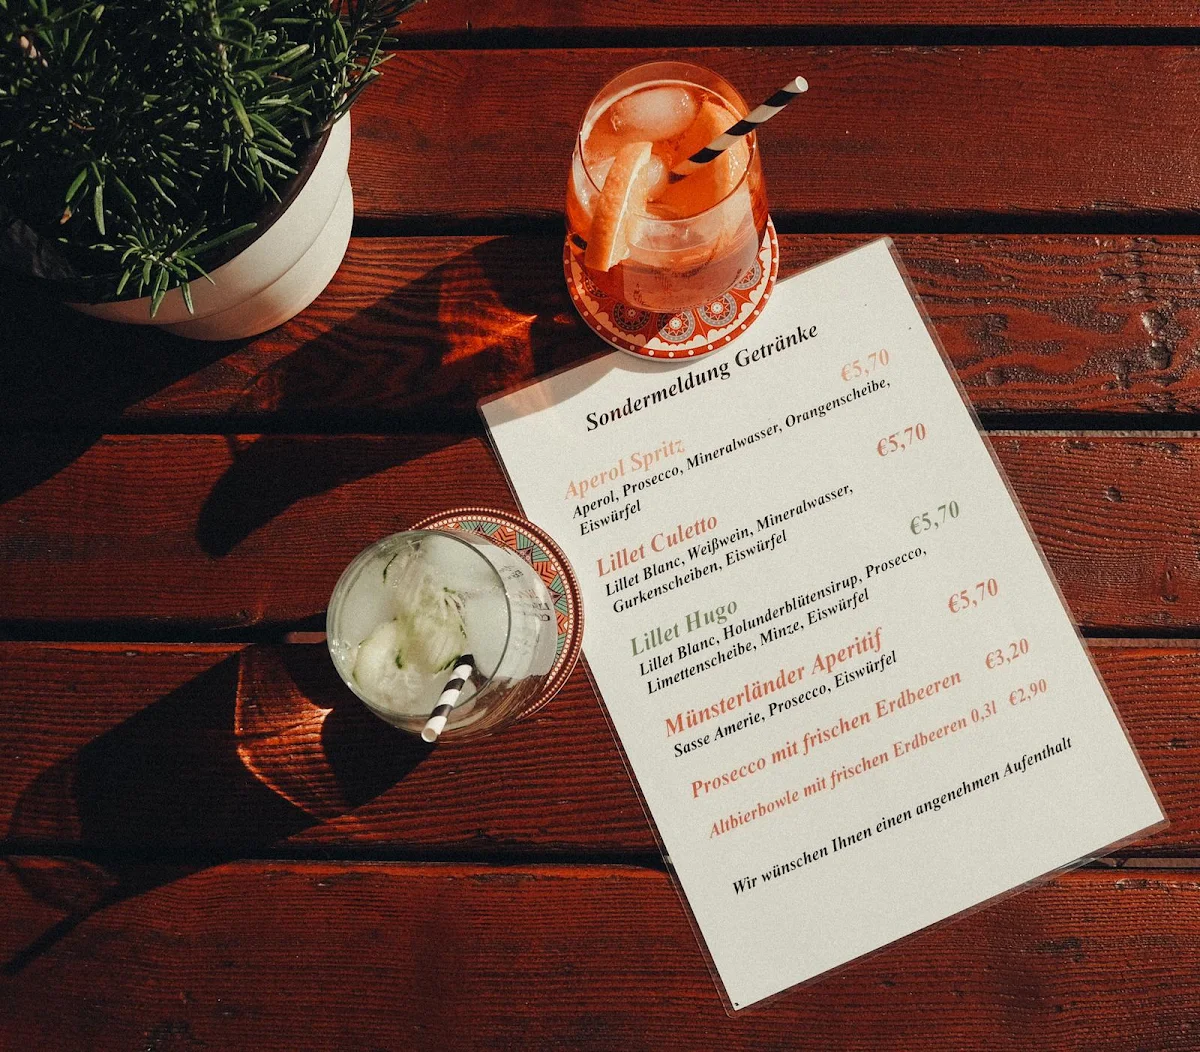 Sondermeldung Getränke
Aperol Spritz €5,70
Aperol, Prosecco, Mineralwasser, Orangenscheibe,
Eiswürfel
Lillet Culetto €5,70
Lillet Blanc, Weißwein, Mineralwasser,
Gurkenscheiben, Eiswürfel
Lillet Hugo €5,70
Lillet Blanc, Holunderblütensirup, Prosecco,
Limettenscheibe, Minze, Eiswürfel
Münsterländer Aperitif €5,70
Sasse Amerie, Prosecco, Eiswürfel
Prosecco mit frischen Erdbeeren €3,20
Altbierbowle mit frischen Erdbeeren 0,3l €2,90
Wir wünschen Ihnen einen angenehmen Aufenthalt